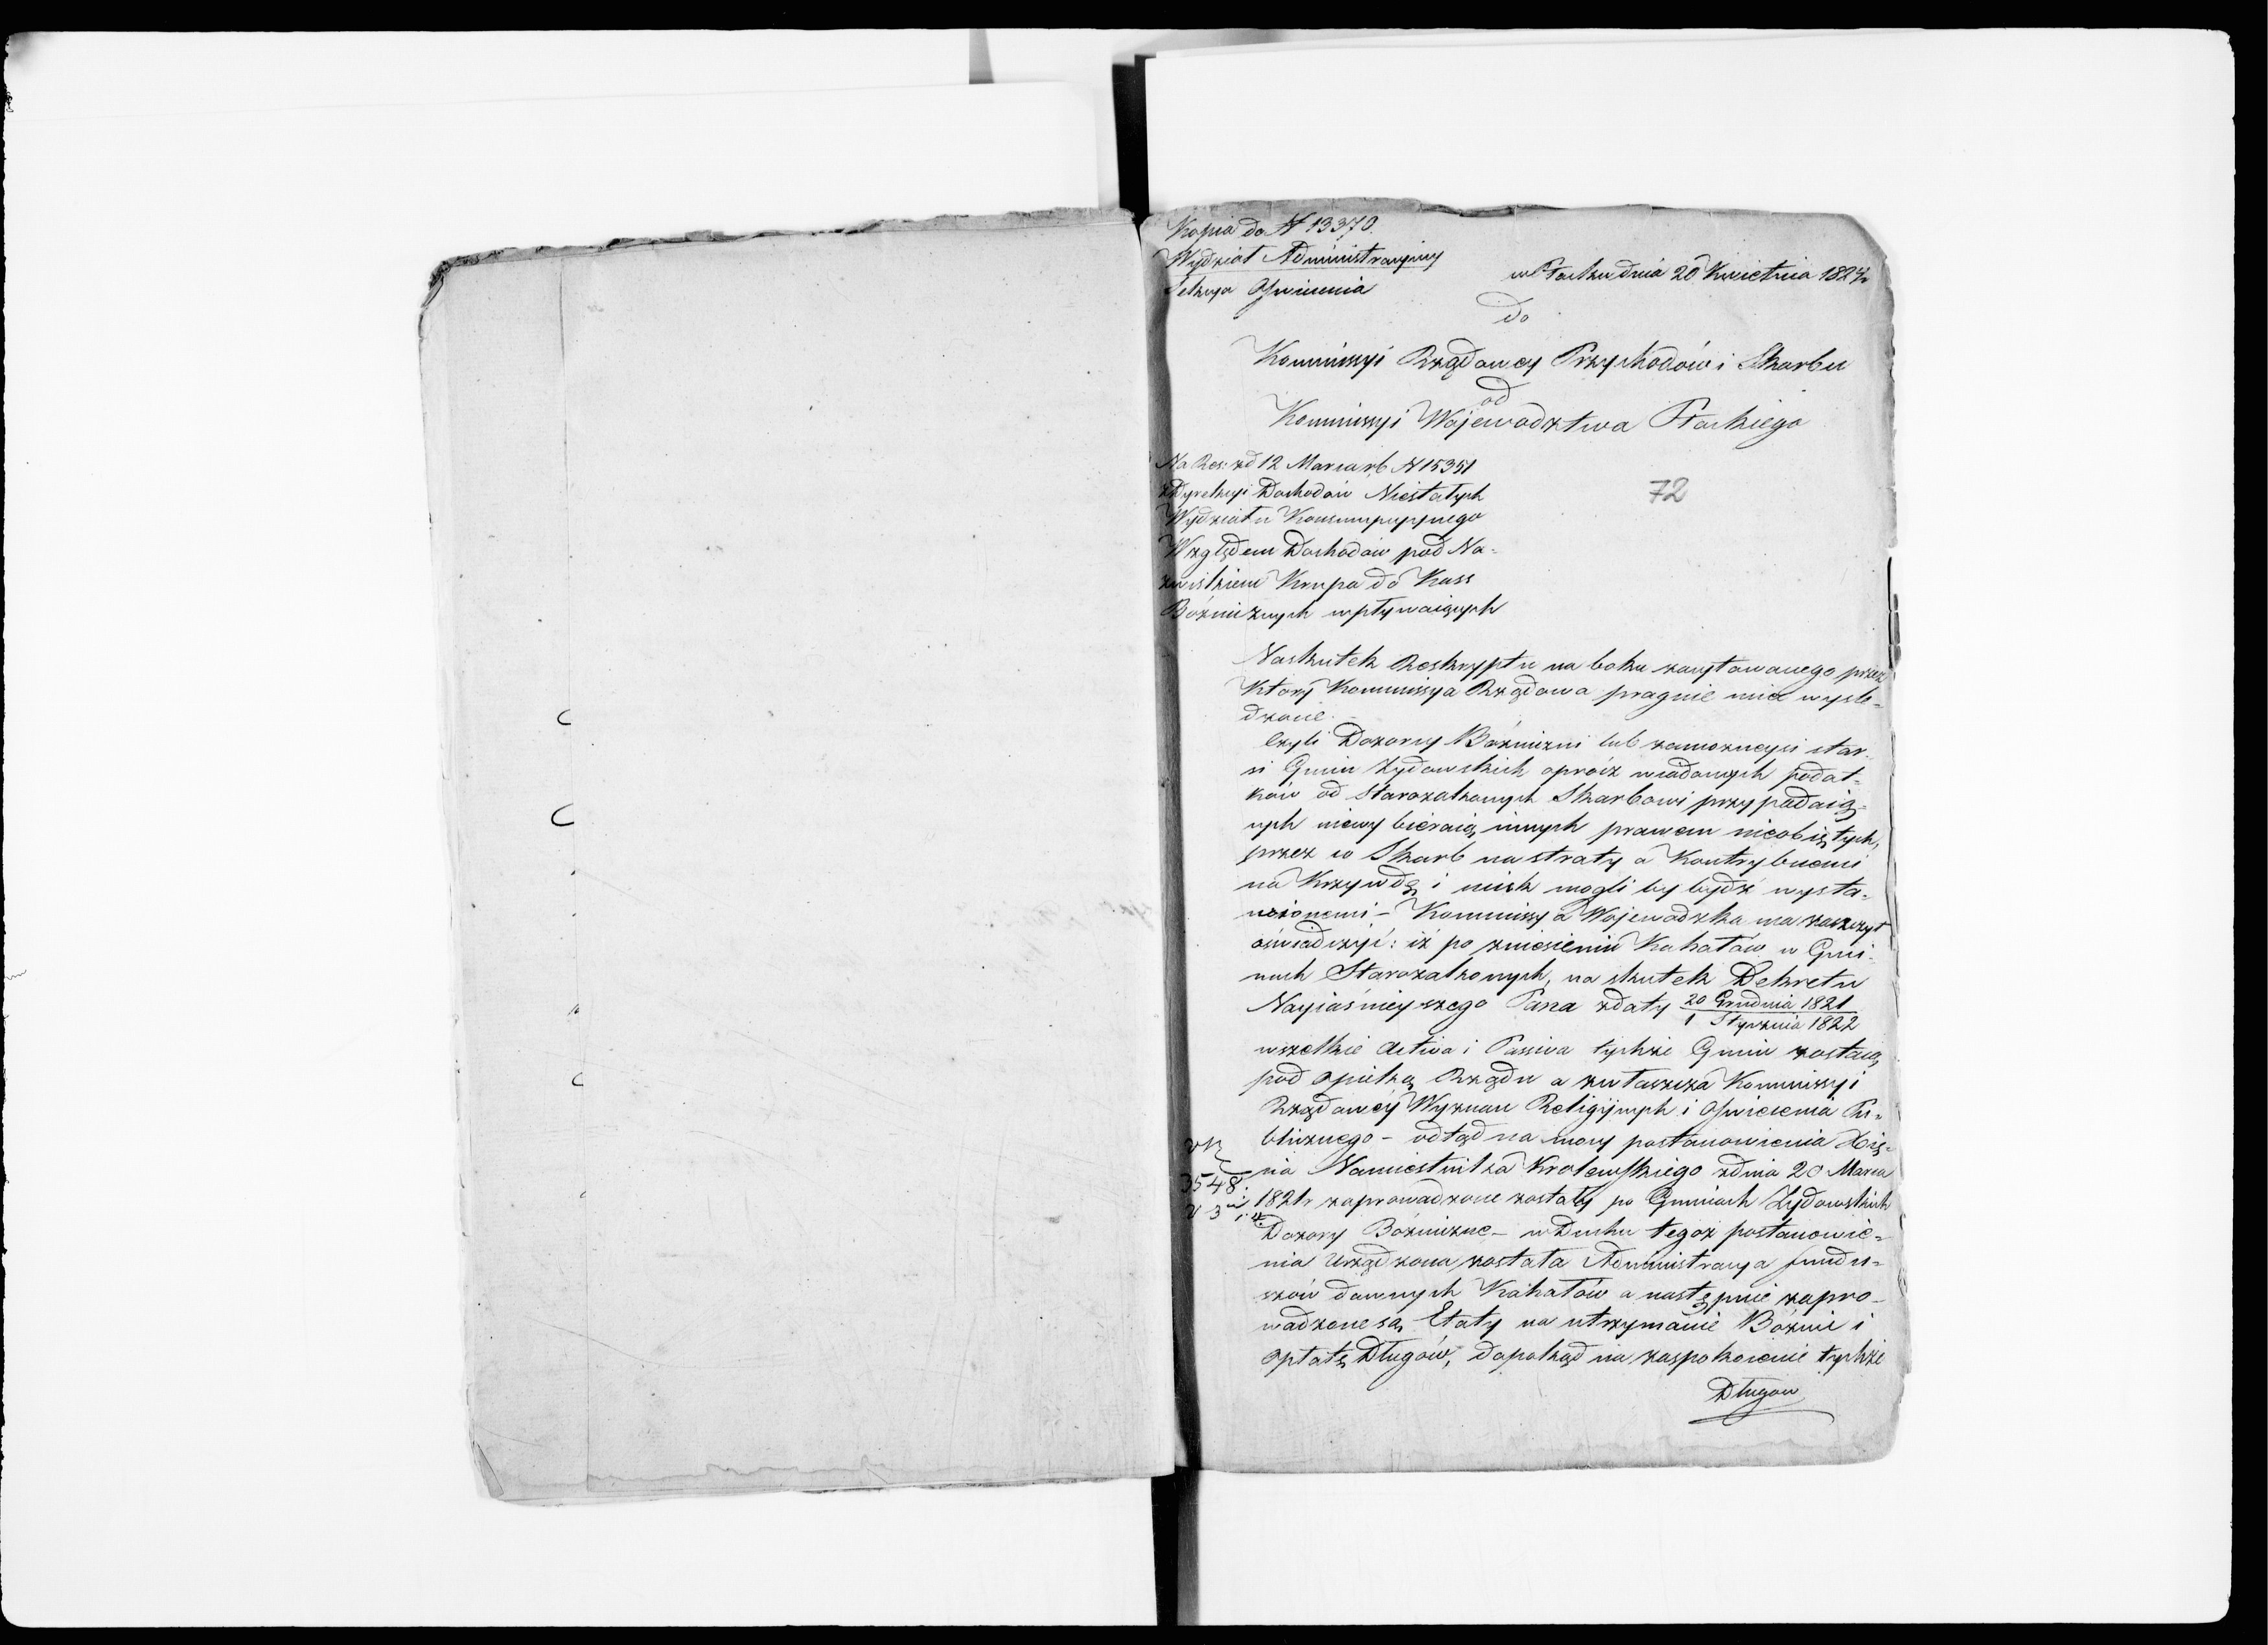 Kopia do N 13370.
Wydział Administracyiny
Sekcya Oświecenia
w Płocku dnia 20 Kwietnia 1824 r
do
Kommissyi Rządowey Przychodów i Skarbu
od
Kommissyi Województwa Płockiego
Na Res: zd 12 Marca rb N 15351
z Dyrekcyi Dochodów Niestałych
Wydziału Konsumpcyjnego
Względem Dochodów pod Na-
zwiskiem Krupa do Kass
Bóżniczych wpływaiących
72
Naskutek Reskryptu na boku zacytowanego przez
Który Kommissya Rządowa pragnie mieć wyśle-
dzone.
Czyli Dozorcy Bóżniczni lub zamożnieysi star-
si Gmin Żydowskich oprócz wiadomych podat-
ków od Starozakonnych Skarbowi przypadaią-
cych niewybieraią innych prawem nieobiętych,
przez co Skarb na straty a Kontrybuenci
na Krzywdę i ucisk mogli by bydź wysta-
wionemi - Kommissya Wojewodzka ma zaszczyt
oświadczyć: iż po zniesieniu Kahałów w Gmi-
nach Starozakonnych, na skutek Dekretu
Nayiaśnieyszego Pana zdaty 20 Grudnia 1821
1 Stycznia 1822
wszelkie Activa i Passiva tychże Gmin zostaią
pod opieką Rządu a zwłaszcza Kommissyi
Rządowey Wyznań Religijnych i Oświecenia Pu-
blicznego - odtąd na mocy postanowienia Xię-
cia Namiestnika Krolewskiego zdnia 20 Marca
1821 r zaprowadzone zostały po Gminach Żydowskich
Dozory Bóżniczne - w Duchu tegoż postanowie-
nia urządzona została Administracya fundu-
szów dawnych Kahałów a następnie zapro-
wadzone są Etaty na utrzymanie Bóżnic i
opłatę Długów, dopokąd na zaspokoienie tychże
Długow
3548